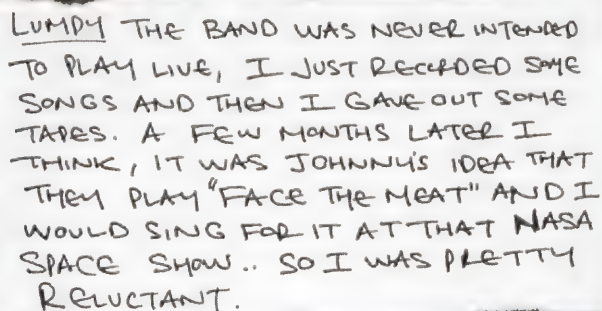 LUMPY THE BAND WAS NEVER INTENDED
TO PLAY LIVE, I JUST RECORDED SOME
SONGS AND THEN I GAVE OUT SOME
TAPES. A FEW MONTHS LATER I
THINK, IT WAS JOHNNY'S IDEA THAT
THEY PLAY "FACE THE MEAT" AND I
WOULD SING FOR IT AT THAT NASA
SPACE SHOW.. SO I WAS PRETTY
RELUCTANT.